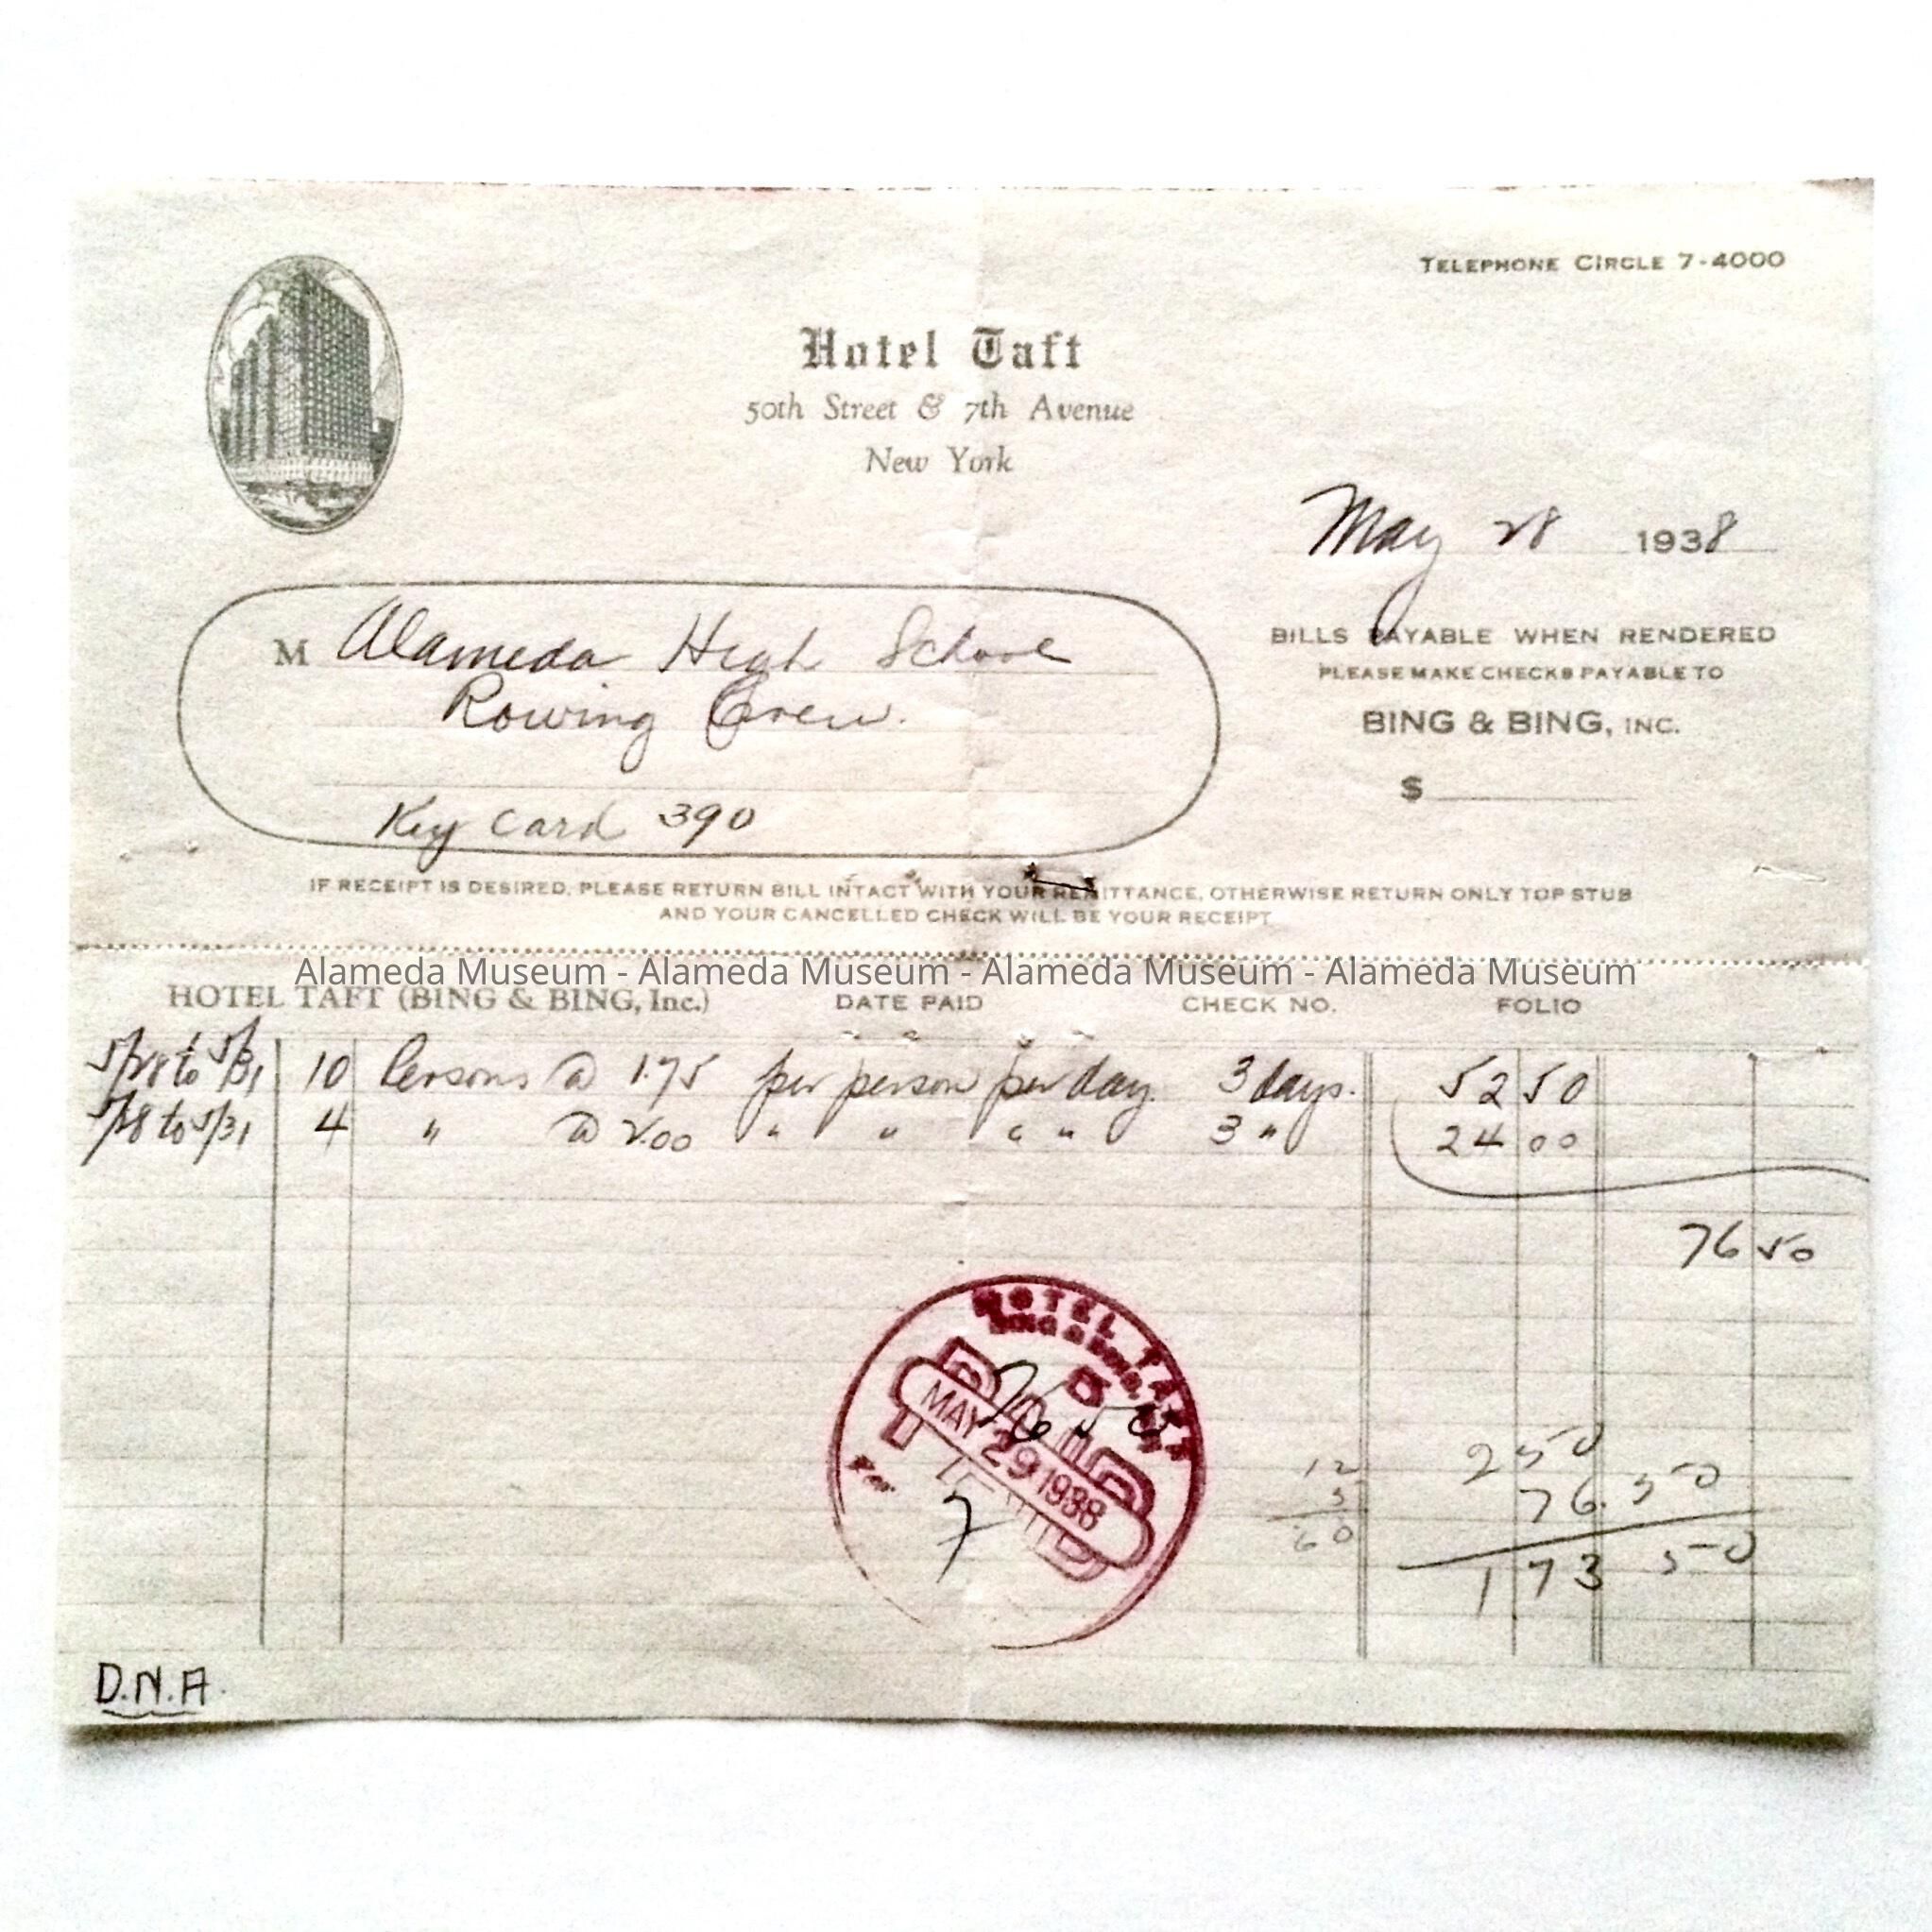 TELEPHONE CIRCLE 7-4000
Hotel Taft
50th Street & 7th Avenue
New York
May 28 1938
M Alameda High School
Rowing Crew.
Key Card 390
BILLS PAYABLE WHEN RENDERED
PLEASE MAKE CHECKS PAYABLE TO
BING & BING, INC.
$
IF RECEIPT IS DESIRED, PLEASE RETURN BILL INTACT WITH YOUR REMITTANCE, OTHERWISE RETURN ONLY TOP STUB
AND YOUR CANCELLED CHECK WILL BE YOUR RECEIPT
Alameda Museum - Alameda Museum - Alameda Museum - Alameda Museum
HOTEL TAFT (BING & BING, Inc.) DATE PAID CHECK NO. FOLIO
5/28 to 5/31 10 Persons @ 1.75 per person per day. 3 days. 52 50
5/28 to 5/31 4 " @ 2.00 " " " " 3 " 24 00
76 50
HOTEL TAFT
PAID
MAY 29 1938
Per
12
5
60
2 50
76.50
173 50
D.N.A.